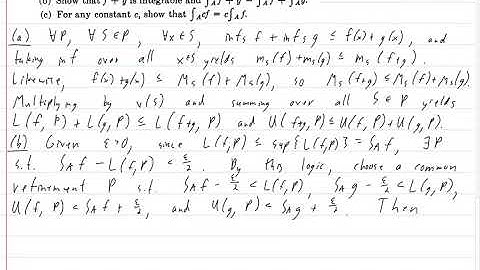 (b) Show that f + g is integrable and ∫_A f + g = ∫_A f + ∫_A g.
(c) For any constant c, show that ∫_A cf = c∫_A f.
(a) ∀P, ∀S∈P, ∀x∈S, inf_S f + inf_S g ≤ f(x) + g(x), and
taking inf over all x∈S yields m_S(f)+m_S(g) ≤ m_S(f+g).
Likewise, f(x)+g(x) ≤ M_S(f)+M_S(g), so M_S(f+g) ≤ M_S(f)+M_S(g).
Multiplying by v(S) and summing over all S∈P yields
L(f,P)+L(g,P) ≤ L(f+g,P) and U(f+g,P) ≤ U(f,P)+U(g,P).
(b) Given ε>0, since L(f,P) ≤ sup{L(f,P)} = ∫_A f, ∃P
s.t. ∫_A f - L(f,P) < ε/2. By this logic, choose a common
refinement P s.t. ∫_A f - ε/2 < L(f,P), ∫_A g - ε/2 < L(g,P),
U(f,P) < ∫_A f + ε/2, and U(g,P) < ∫_A g + ε/2. Then